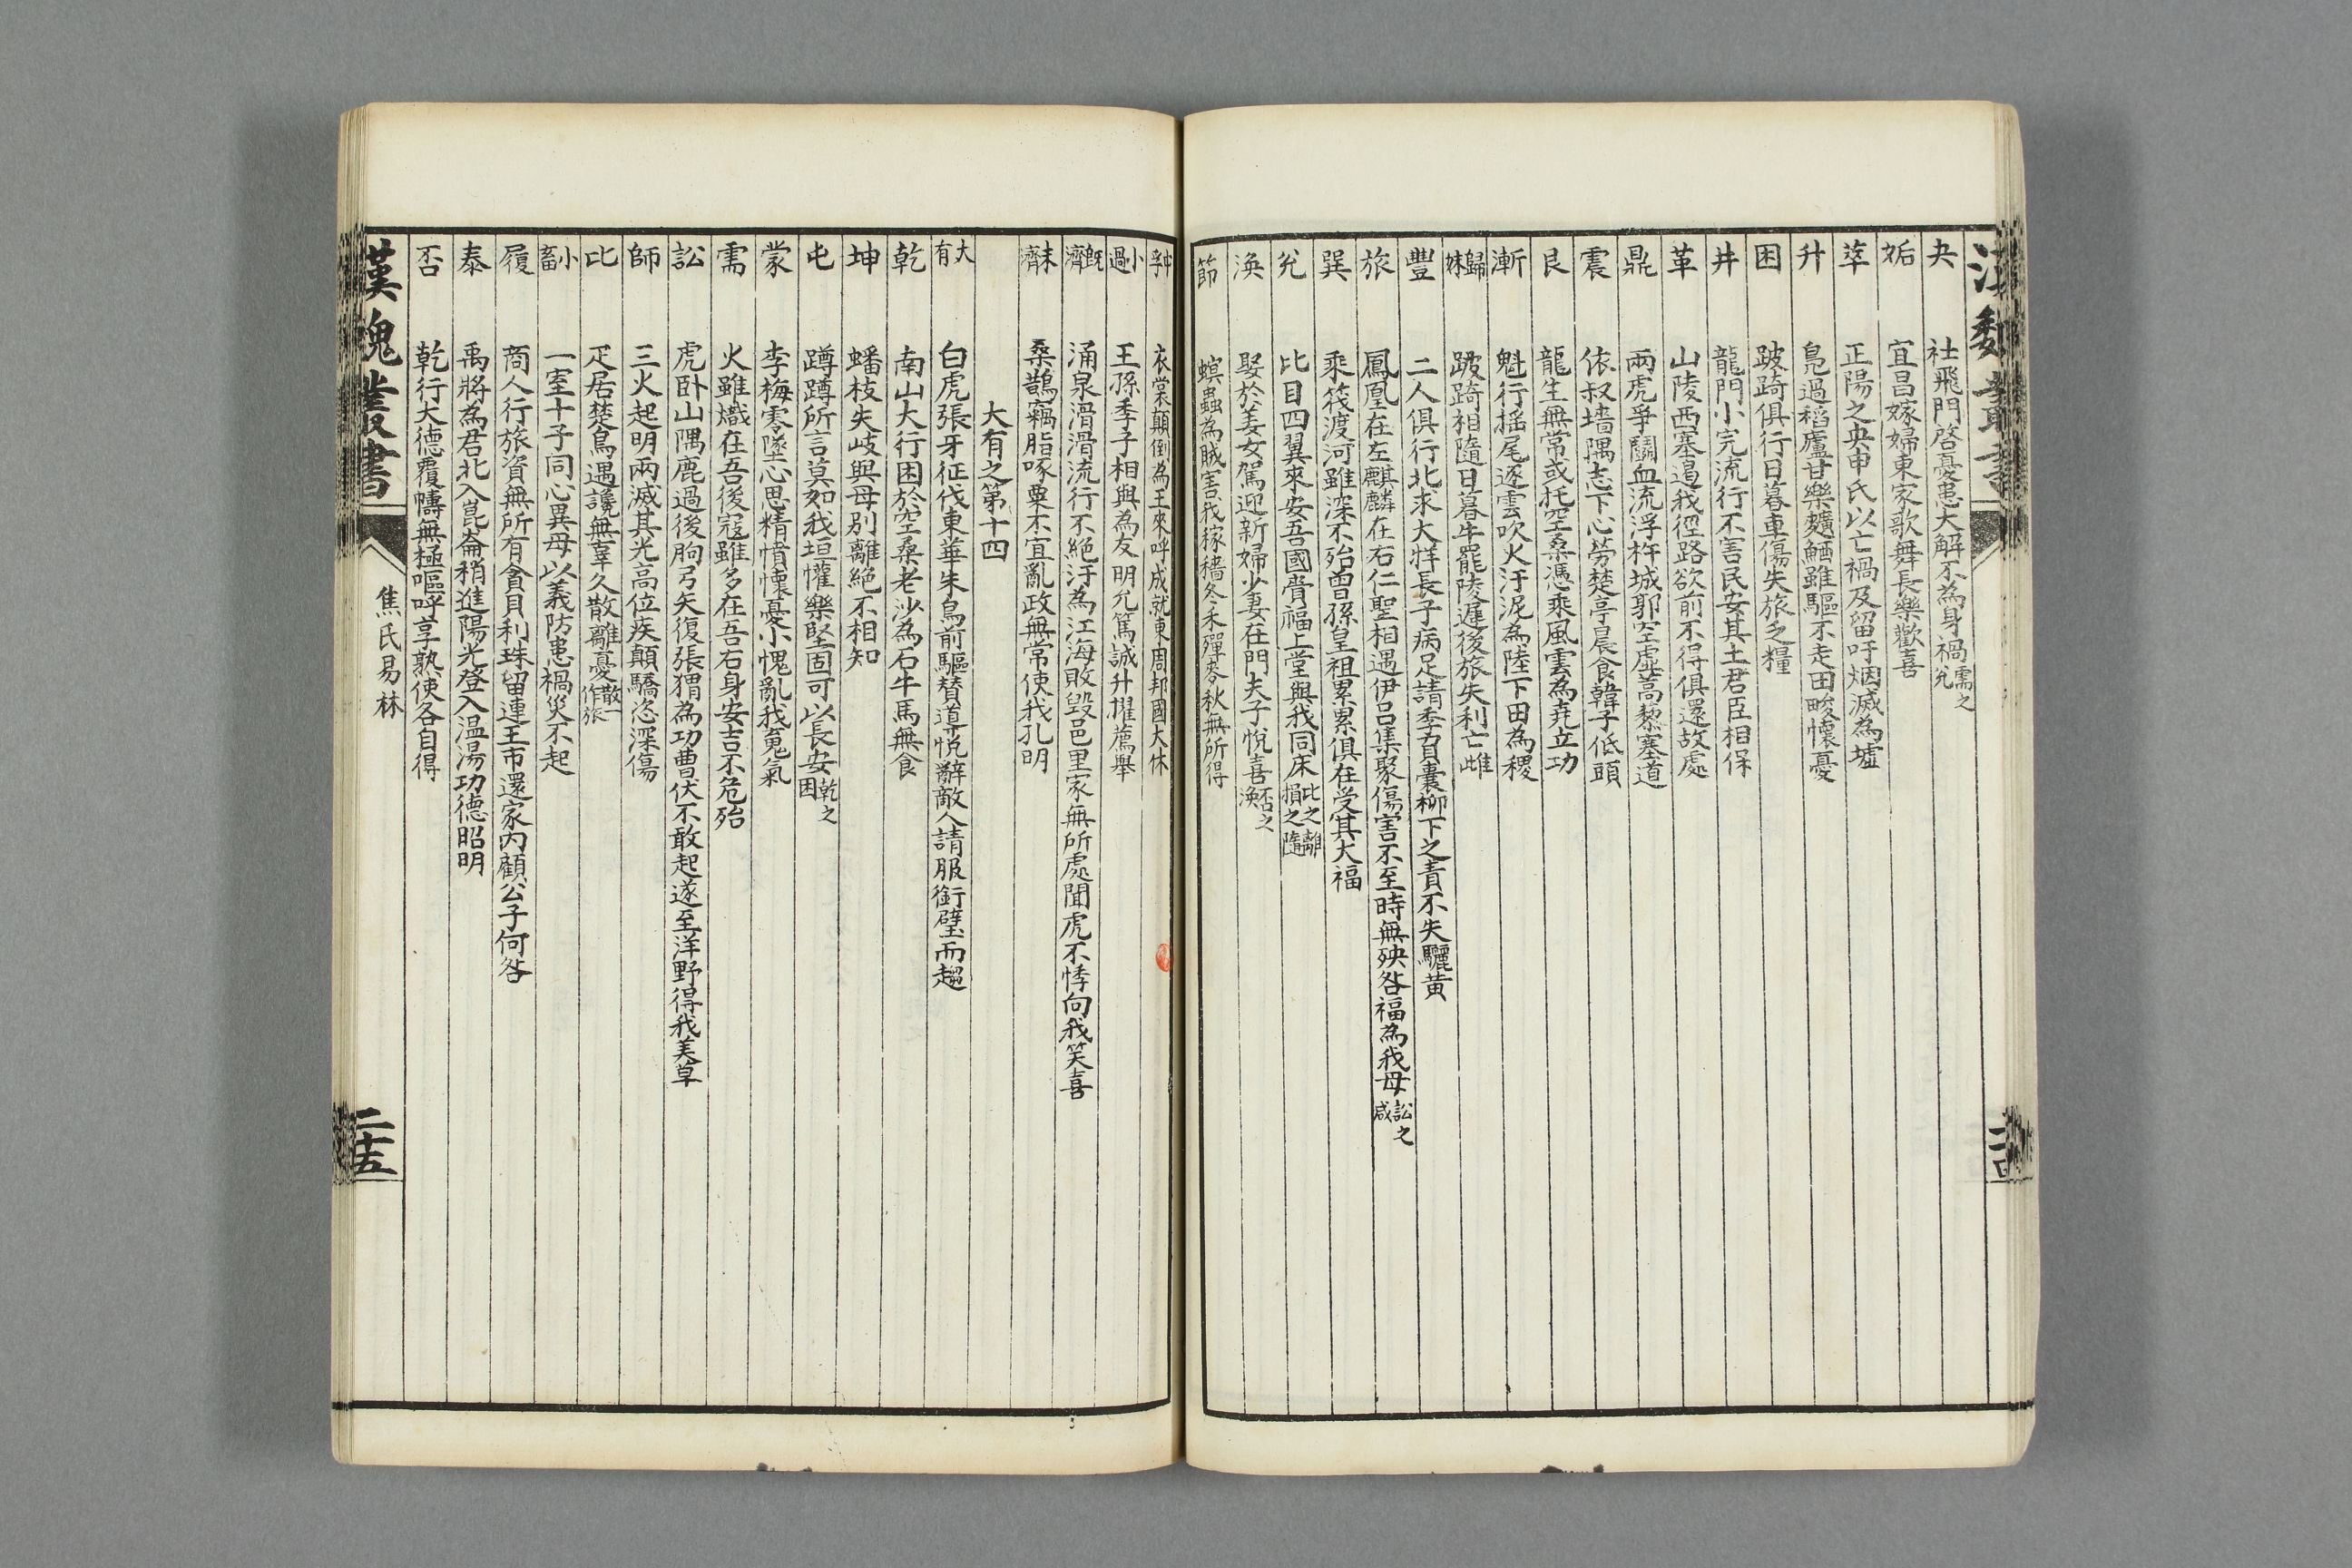 漢魏叢書
二十四
夬 社飛門啓憂患大解不為身禍需之兌
姤 宜昌嫁婦東家歌舞長樂歡喜
萃 正陽之央申氏以亡禍及留吁烟滅為墟
升 鳧過稻廬甘樂䵄鰌雖驅不走田畯懷憂
困 跛踦俱行日暮車傷失旅乏糧
井 龍門小完流行不害民安其土君臣相保
革 山陵西塞遏我徑路欲前不得俱還故處
鼎 兩虎爭鬬血流浮杵城郭空虛蒿藜塞道
震 依叔墻隅志下心勞楚亭晨食韓子低頭
艮 龍生無常或托空桑憑乘風雲為堯立功
漸 魁行搖尾逐雲吹火汙泥為陸下田為稷
歸妹 跛踦相隨日暮牛罷陵遲後旅失利亡雌
豐 二人俱行北求大牂長子病足請季負囊柳下之責不失驪黃
旅 鳳凰在左麒麟在右仁聖相遇伊呂集聚傷害不至時無殃咎福為我母訟之咸
巽 乘筏渡河雖深不殆曾孫皇祖累累俱在受其大福
兌 比目四翼來安吾國齎福上堂與我同床比之離損之隨
渙 娶於姜女駕迎新婦少妻在門夫子悅喜否之渙
節 螟蟲為賊害我稼穡冬禾殫麥秋無所得
中孚 衣裳顛倒為王來呼成就東周邦國大休
小過 王孫季子相與為友明允篤誠升擢薦舉
既濟 涌泉滑滑流行不絕汙為江海敗毀邑里家無所處聞虎不悸向我笑喜
未濟 桑鵲竊脂啄粟不宜亂政無常使我孔明
大有之第十四
大有 白虎張牙征伐東華朱鳥前驅賛導悅辭敵人請服銜璧而趨
乾 南山大行困於空桑老沙為石牛馬無食
坤 蟠枝失岐與母別離絕不相知
屯 蹲蹲所言莫如我垣懽樂堅固可以長安乾之困
蒙 李梅零墜心思精憒懷憂小愧亂我䰟氣
需 火雖熾在吾後寇雖多在吾右身安吉不危殆
訟 虎卧山隅鹿過後朐弓矢復張猬為功曹伏不敢起遂至洋野得我美草
師 三火起明雨滅其光高位疾顛驕恣深傷
比 疋居楚鳥遇讒無辜久散離憂散一作旅
小畜 一室十子同心異母以義防患禍災不起
履 商人行旅資無所有貪貝利珠留連王市還家內顧公子何咎
泰 禹將為君北入崑崙稍進陽光登入溫湯功德昭明
否 乾行大德覆幬無極嘔呼享熟使各自得
漢魏叢書
焦氏易林
二十五